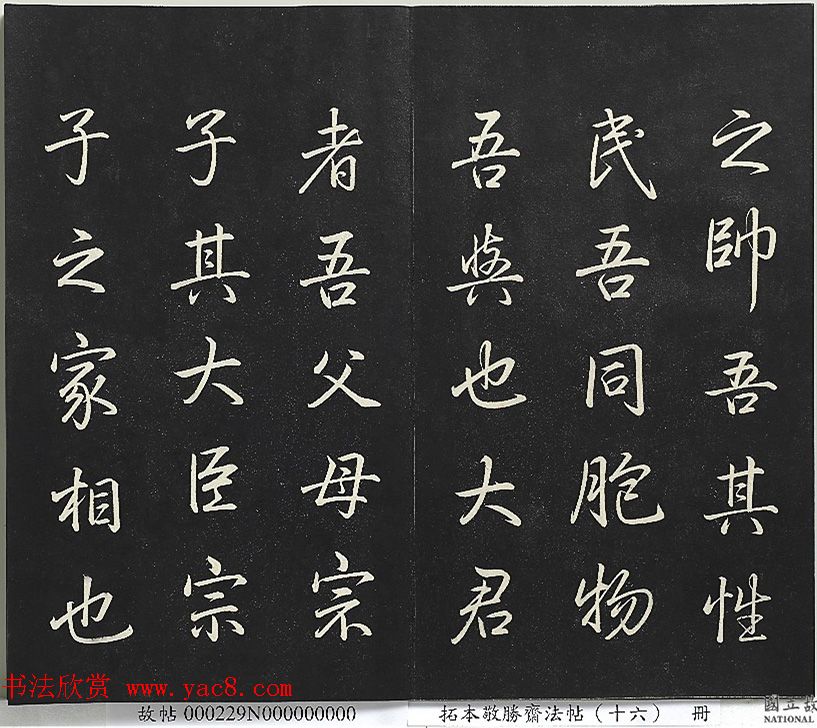 之帥吾其性
民吾同胞物
吾與也大君
者吾父母宗
子其大臣宗
子之家相也
书法欣赏 www.yac8.com
故帖 000229N000000000
拓本敬勝齋法帖（十六） 冊
國立故
NATIONAL